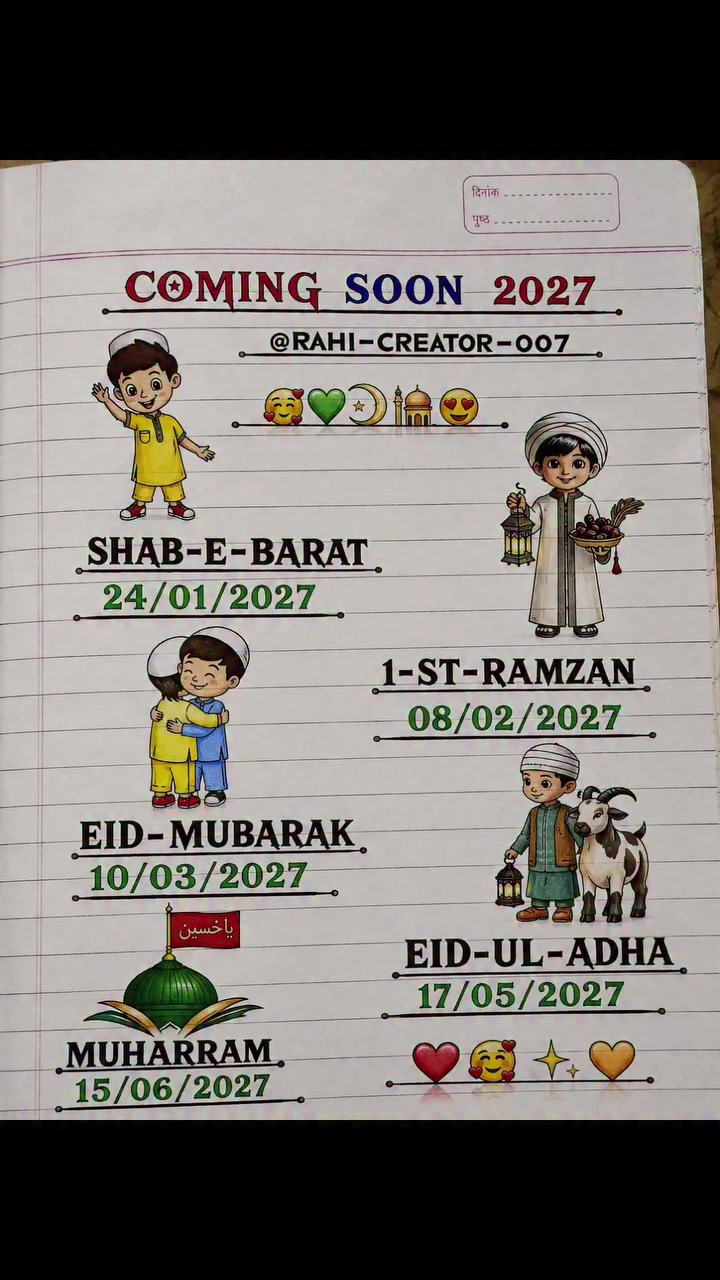 दिनांक
पुष्ठ
COMING SOON 2027
@RAHI-CREATOR-007
SHAB-E-BARAT
24/01/2027
1-ST-RAMZAN
08/02/2027
EID-MUBARAK
10/03/2027
EID-UL-ADHA
17/05/2027
ياخسين
MUHARRAM
15/06/2027